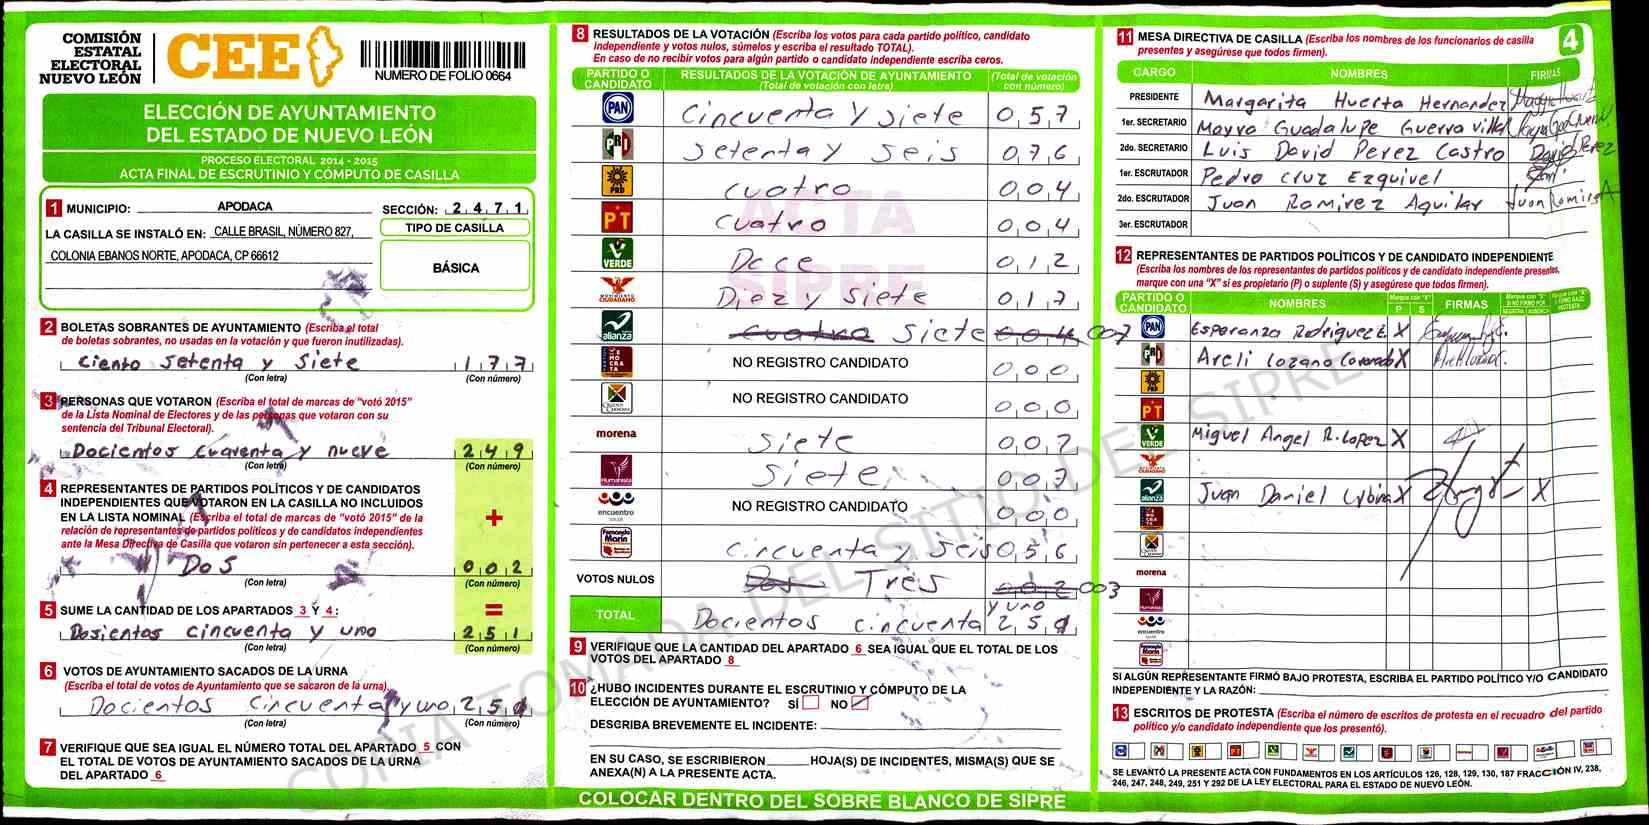 COMISIÓN
ESTATAL
ELECTORAL
NUEVO LEÓN
CEE
NUMERO DE FOLIO 0664
ELECCIÓN DE AYUNTAMIENTO
DEL ESTADO DE NUEVO LEÓN
PROCESO ELECTORAL 2014 - 2015
ACTA FINAL DE ESCRUTINIO Y CÓMPUTO DE CASILLA
1 MUNICIPIO: APODACA SECCIÓN: 2471
LA CASILLA SE INSTALÓ EN: CALLE BRASIL, NÚMERO 827,
COLONIA EBANOS NORTE, APODACA, CP 66612
TIPO DE CASILLA
BÁSICA
2 BOLETAS SOBRANTES DE AYUNTAMIENTO (Escriba el total
de boletas sobrantes, no usadas en la votación y que fueron inutilizadas).
Ciento setenta y siete 177
(Con letra) (Con número)
3 PERSONAS QUE VOTARON (Escriba el total de marcas de "votó 2015"
de la Lista Nominal de Electores y de las personas que votaron con su
sentencia del Tribunal Electoral).
Docientos cuarenta y nueve 249
(Con letra) (Con número)
4 REPRESENTANTES DE PARTIDOS POLÍTICOS Y DE CANDIDATOS
INDEPENDIENTES QUE VOTARON EN LA CASILLA NO INCLUIDOS
EN LA LISTA NOMINAL (Escriba el total de marcas de "votó 2015" de la
relación de representantes de partidos políticos y de candidatos independientes
ante la Mesa Directiva de Casilla que votaron sin pertenecer a esta sección).
+
Dos 002
(Con letra) (Con número)
5 SUME LA CANTIDAD DE LOS APARTADOS 3 Y 4: =
Dosientos cincuenta y uno 251
(Con letra) (Con número)
6 VOTOS DE AYUNTAMIENTO SACADOS DE LA URNA
(Escriba el total de votos de Ayuntamiento que se sacaron de la urna).
Docientos cincuenta y uno 251
(Con letra) (Con número)
7 VERIFIQUE QUE SEA IGUAL EL NÚMERO TOTAL DEL APARTADO 5 CON
EL TOTAL DE VOTOS DE AYUNTAMIENTO SACADOS DE LA URNA
DEL APARTADO 6
8 RESULTADOS DE LA VOTACIÓN (Escriba los votos para cada partido político, candidato
independiente y votos nulos, súmelos y escriba el resultado TOTAL).
En caso de no recibir votos para algún partido o candidato independiente escriba ceros.
PARTIDO O CANDIDATO RESULTADOS DE LA VOTACIÓN DE AYUNTAMIENTO (Total de votación con letra) (Total de votación con número)
PAN Cincuenta y siete 057
PRI setenta y seis 076
PRD cuatro 004
PT cuatro 004
VERDE Doce 012
MOVIMIENTO CIUDADANO Diez y siete 017
alianza cuatro siete 004 007
DEMOCRATA NO REGISTRO CANDIDATO 000
NO REGISTRO CANDIDATO 000
morena siete 007
Humanista siete 007
encuentro social NO REGISTRO CANDIDATO 000
Fernando Marin cincuenta y seis 056
VOTOS NULOS Dos Tres 002 003
TOTAL Docientos cincuenta y uno 251
9 VERIFIQUE QUE LA CANTIDAD DEL APARTADO 6 SEA IGUAL QUE EL TOTAL DE LOS
VOTOS DEL APARTADO 8
10 ¿HUBO INCIDENTES DURANTE EL ESCRUTINIO Y CÓMPUTO DE LA
ELECCIÓN DE AYUNTAMIENTO? SÍ NO
DESCRIBA BREVEMENTE EL INCIDENTE:
EN SU CASO, SE ESCRIBIERON HOJA(S) DE INCIDENTES, MISMA(S) QUE SE
ANEXA(N) A LA PRESENTE ACTA.
COLOCAR DENTRO DEL SOBRE BLANCO DE SIPRE
ACTA
SIPRE
COPIA TOMADA DEL SITIO DEL SIPRE
11 MESA DIRECTIVA DE CASILLA (Escriba los nombres de los funcionarios de casilla
presentes y asegúrese que todos firmen).
4
CARGO NOMBRES FIRMAS
PRESIDENTE Margarita Huerta Hernandez
1er. SECRETARIO Mayra Guadalupe Guerra Villar
2do. SECRETARIO Luis David Perez Castro David Perez
1er. ESCRUTADOR Pedro Cruz Ezquivel
2do. ESCRUTADOR Juan Ramirez Aguilar Juan Ramirez A
3er. ESCRUTADOR
12 REPRESENTANTES DE PARTIDOS POLÍTICOS Y DE CANDIDATO INDEPENDIENTE
(Escriba los nombres de los representantes de partidos políticos y de candidato independiente presentes,
marque con una "X" si es propietario (P) o suplente (S) y asegúrese que todos firmen).
PARTIDO O CANDIDATO NOMBRES Marque con "X" P S FIRMAS Marque con "X" SI NO FIRMÓ POR NEGATIVA AUSENCIA Marque con "X" SI FIRMÓ BAJO PROTESTA
PAN Esperanza Rodriguez E. X
PRI Areli Lozano Coronado X
PRD
PT
VERDE Miguel Angel R. Lopez X
MOVIMIENTO CIUDADANO
alianza Juan Daniel X X
morena
Humanista
encuentro
Fernando Marin
SI ALGÚN REPRESENTANTE FIRMÓ BAJO PROTESTA, ESCRIBA EL PARTIDO POLÍTICO Y/O CANDIDATO
INDEPENDIENTE Y LA RAZÓN:
13 ESCRITOS DE PROTESTA (Escriba el número de escritos de protesta en el recuadro del partido
político y/o candidato independiente que los presentó).
SE LEVANTÓ LA PRESENTE ACTA CON FUNDAMENTOS EN LOS ARTÍCULOS 126, 128, 129, 130, 187 FRACCIÓN IV, 238,
246, 247, 248, 249, 251 Y 292 DE LA LEY ELECTORAL PARA EL ESTADO DE NUEVO LEÓN.